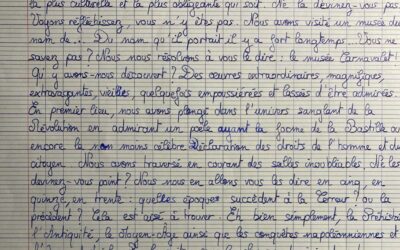 la plus culturelle et la plus obligeante qui soit. Ne la devinez-vous pas
Voyons réfléchissez, vous n'y êtes pas. Nous avons visité un musée du
nom de... Du nom qu'il portait il y a fort longtemps. Vous ne
savez pas ? Nous nous résolvons à vous le dire : le musée Carnavalet !
Qu'y avons-nous découvert ? Des œuvres extraordinaires, magnifiques,
extravagantes vieilles, quelquefois empoussiérées et lassées d'être admirées.
En premier lieu, nous avons plongé dans l'univers sanglant de la
Révolution en admirant un poêle ayant la forme de la Bastille ou
encore la non moins célèbre Déclaration des droits de l'homme et du
citoyen. Nous avons traversé en courant des salles inoubliables. Ne les
devinez-vous point ? Nous nous en allons vous les dire en cinq, en
quinze, en trente : quelles époques succèdent à la Terreur ? ou la
précèdent ? Cela est aisé à trouver. Eh bien simplement, la Préhistoire
l'Antiquité, le Moyen-Age ainsi que les conquêtes napoléoniennes et